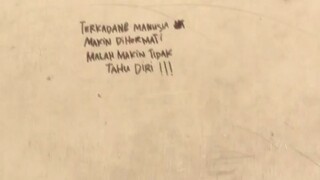 TERKADANG MANUSIA
MAKIN DIHORMATI
MALAH MAKIN TIDAK
TAHU DIRI !!!